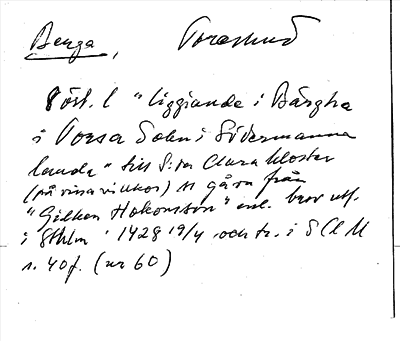 Berga, Toresund
8 örl. l "liggiande i Bärgha
i Torsa Sokn i Södermanna
landa" till S:ta Clara kloster
(på vissa villkor) st gåva från
"Gelken Hakonsson" enl. brev utf.
i Sthlm 1428 19/4 och tr. i SCM
s. 40 f. (nr 60)